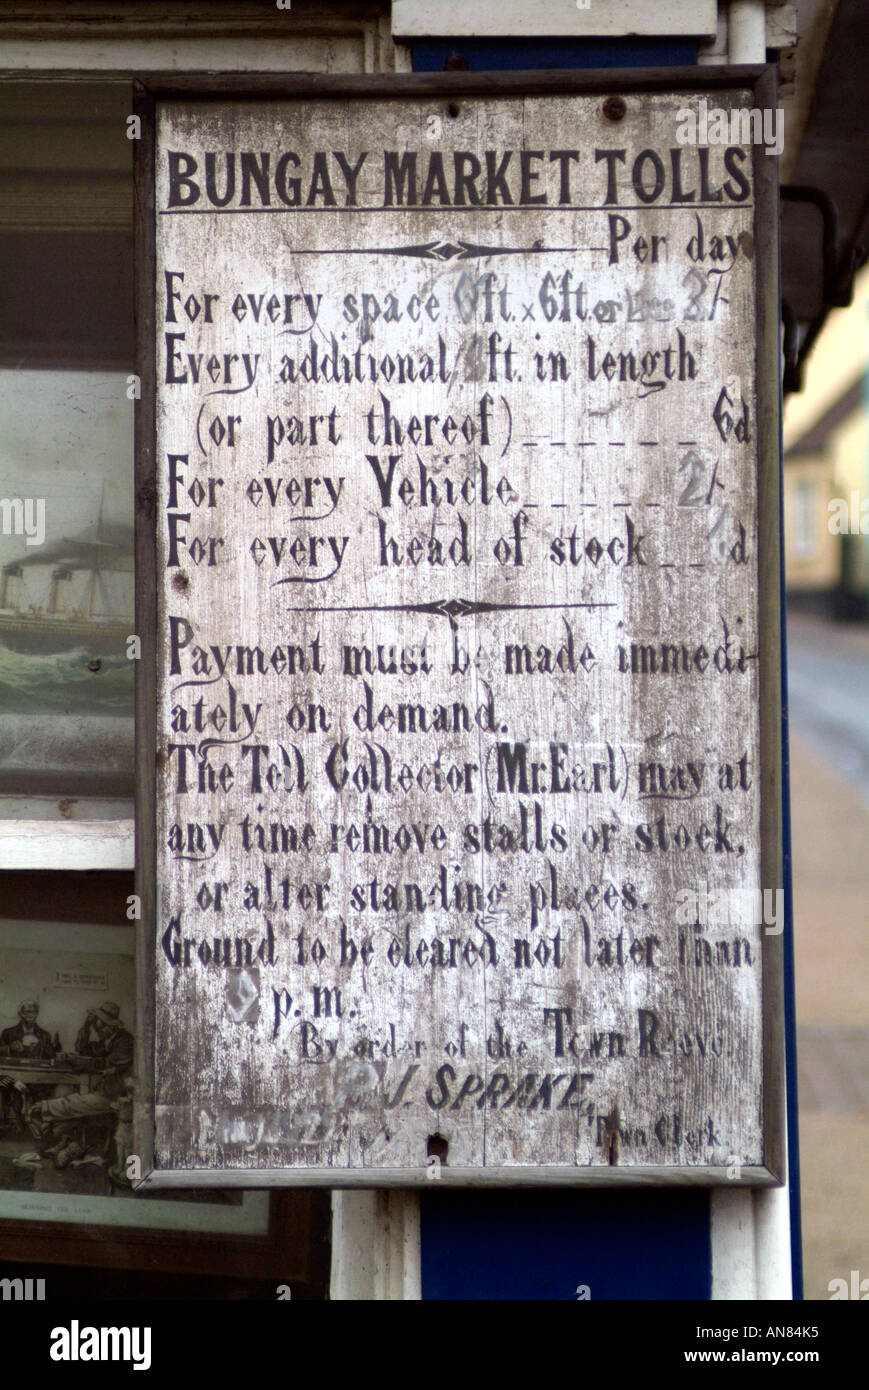 BUNGAY MARKET TOLLS
Per day
For every space 6ft. x 6ft. or Less 2/-
Every additional ft. in length
(or part thereof) _ _ _ _ _ _ 6d
For every Vehicle _ _ _ _ _ 2/-
For every head of stock _ _ d
Payment must be made immedi-
ately on demand.
The Toll Collector (Mr. Earl) may at
any time remove stalls or stock,
or alter standing places.
Ground to be cleared not later than
p.m.
By order of the Town Reeve.
J. SPRAKE,
Town Clerk.
alamy
alamy stock photo
AN84K5
www.alamy.com